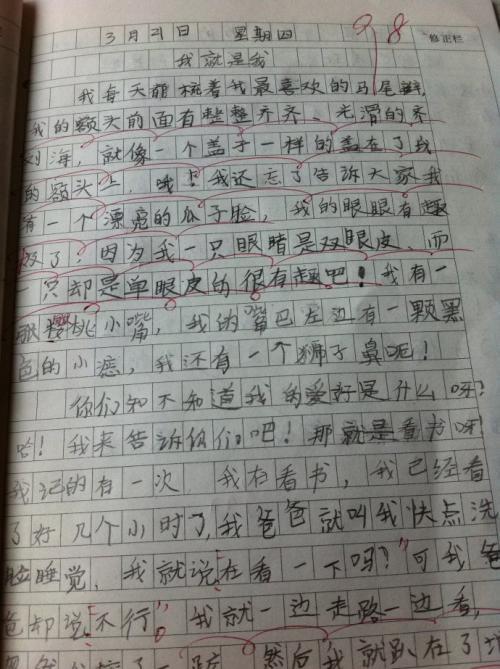 3月21日 星期四 98 修正栏
我就是我
我每天都梳着我最喜欢的马尾辫,
我的额头前面有整整齐齐、光滑的齐
刘海,就像一个盖子一样的盖在了我
的额头上,哦!我还忘了告诉大家我
有一个漂亮的瓜子脸,我的眼眼有趣
极了?因为我一只眼睛是双眼皮、而
一只却是单眼皮的很有趣吧!我有一
樱桃小嘴,我的嘴巴左边有一颗黑
色的小痣,我还有一个狮子鼻呢!
你们知不知道我的爱好是什么呀?
哈!我来告诉你们吧!那就是看书呀
我记的有一次,我在看书,我已经看
了好几个小时了,我爸爸就叫我快点洗
脸睡觉,我就说:“在看一下吗?”可我爸
爸却说:“不行”。我就一边走路一边看,
然后我就趴在了